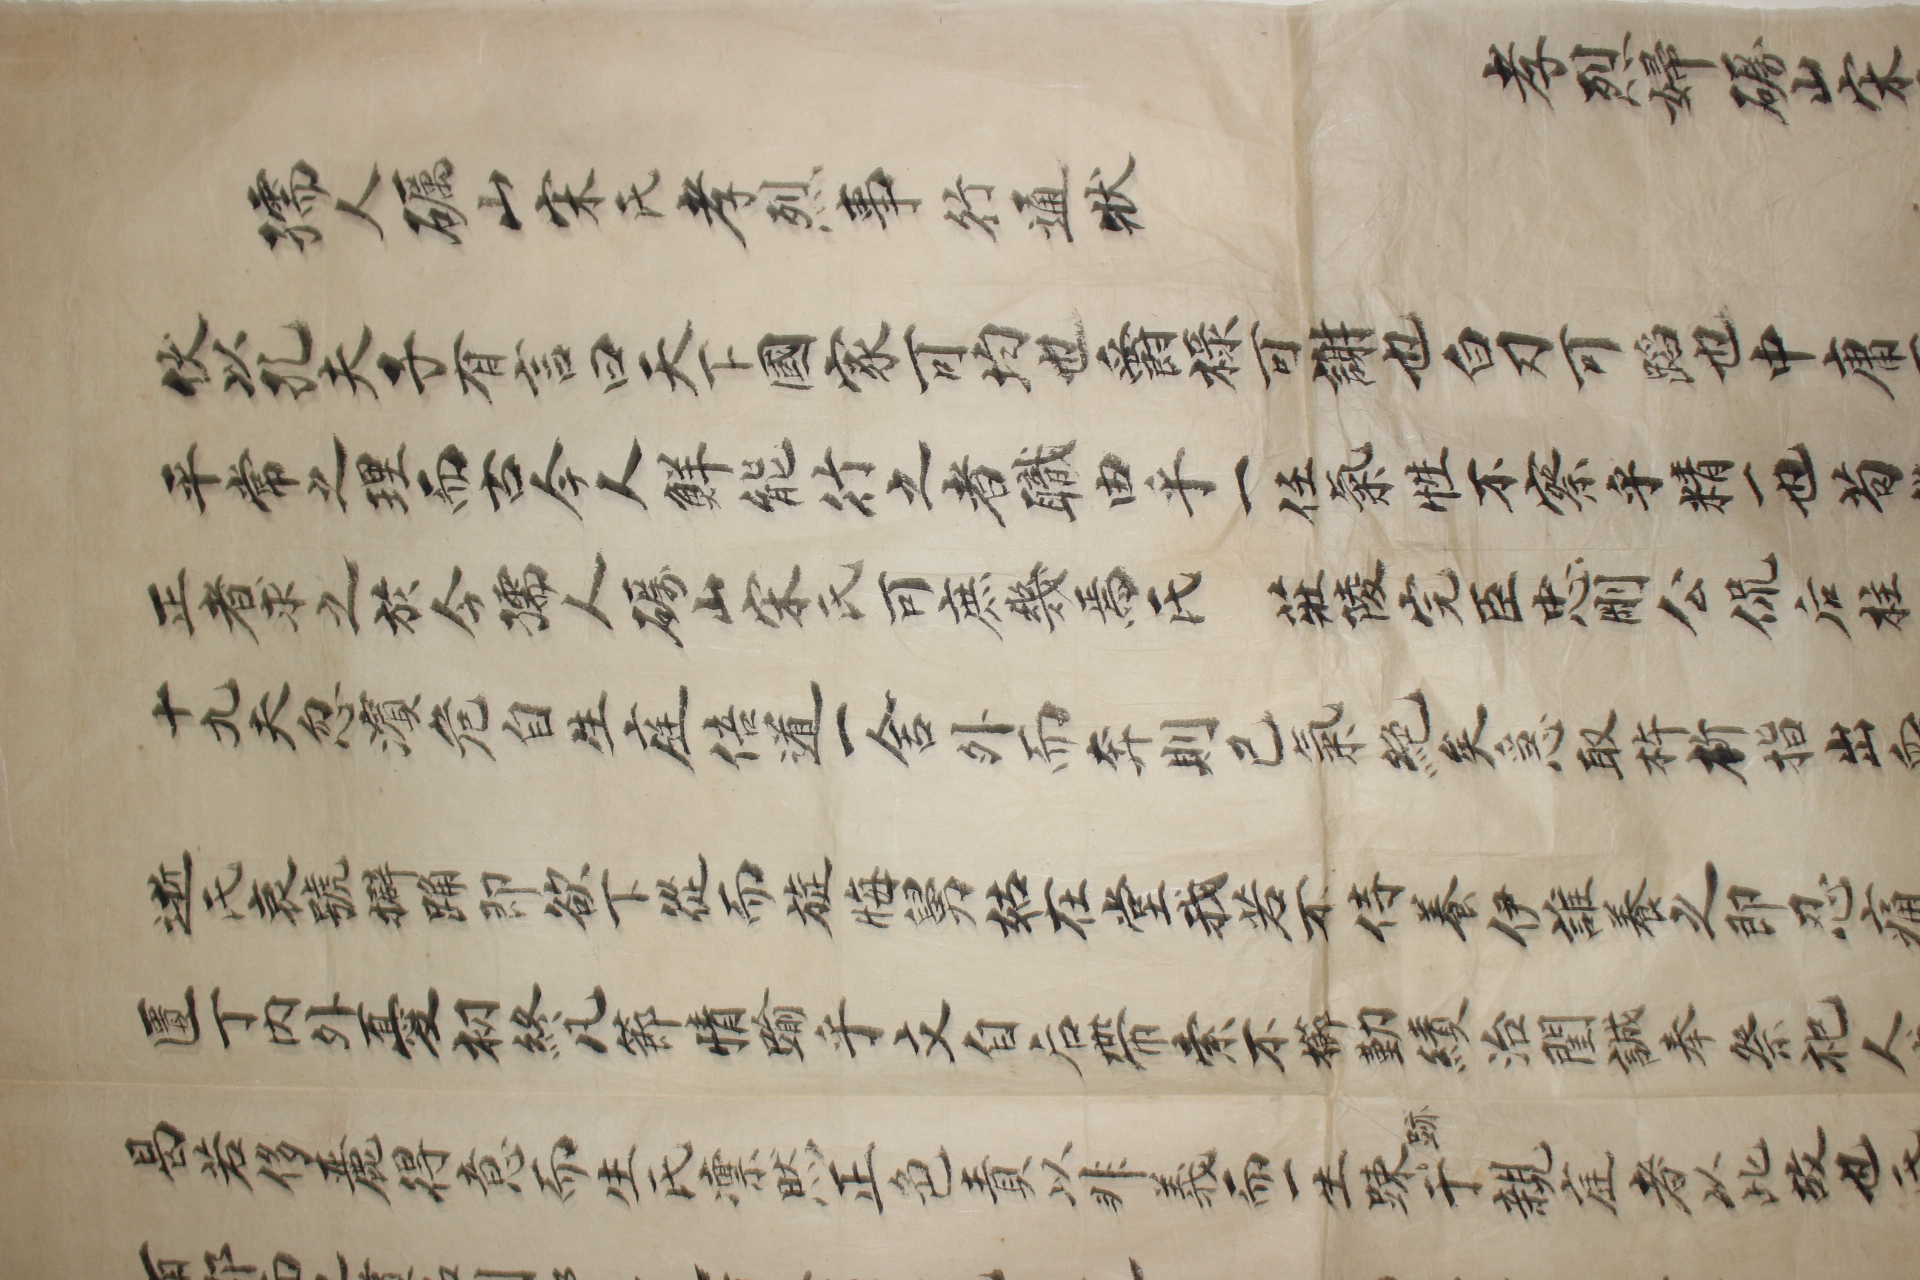 孝烈婦礪山宋
孺人礪山宋氏孝烈事行通狀
伏以孔夫子有言曰天下國家可均也爵祿可謝也白刃可蹈也中庸
平常之理而古今人鮮能行之者職由乎一任氣性不察乎精一也苟
正者求之於今孺人礪山宋氏可庶幾焉氏 莊陵完臣忠剛公侃后柱
十九夫忽濱危自生庭倍道一舍外而奔則已氣絶矣急取杵斫指出
逝氏哀號擗踊即欲下從而旋悔舅姑在堂我若不侍養伊誰養之即忍痛
匶丁內外憂初終凡節情踰乎文自后帶索不櫛勤績治閨誠奉祭祀人
曷若侈麗得意而生氏凛然正色責以非義而一生踈于親庭者以此故也氏
跡